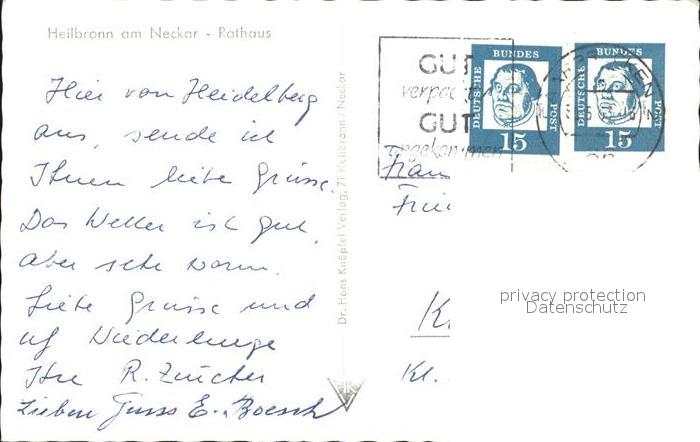 Heilbronn am Neckar - Rathaus
Hier von Heidelberg
aus, sende ich
Ihnen liebe Grüsse.
Das Wetter ist gut,
aber sehr warm.
Liebe Grüsse und
uf Wiederluege
Ihre R. Zürcher
Lieben Gruss E. Boesch
Dr. Hans Knöpfel Verlag, 71 Heilbronn/Neckar
GUT
verpackt
GUT
angekommen
DEUTSCHE BUNDES POST
15
DEUTSCHE BUNDES POST
15
Frau
K
Kl.
privacy protection
Datenschutz